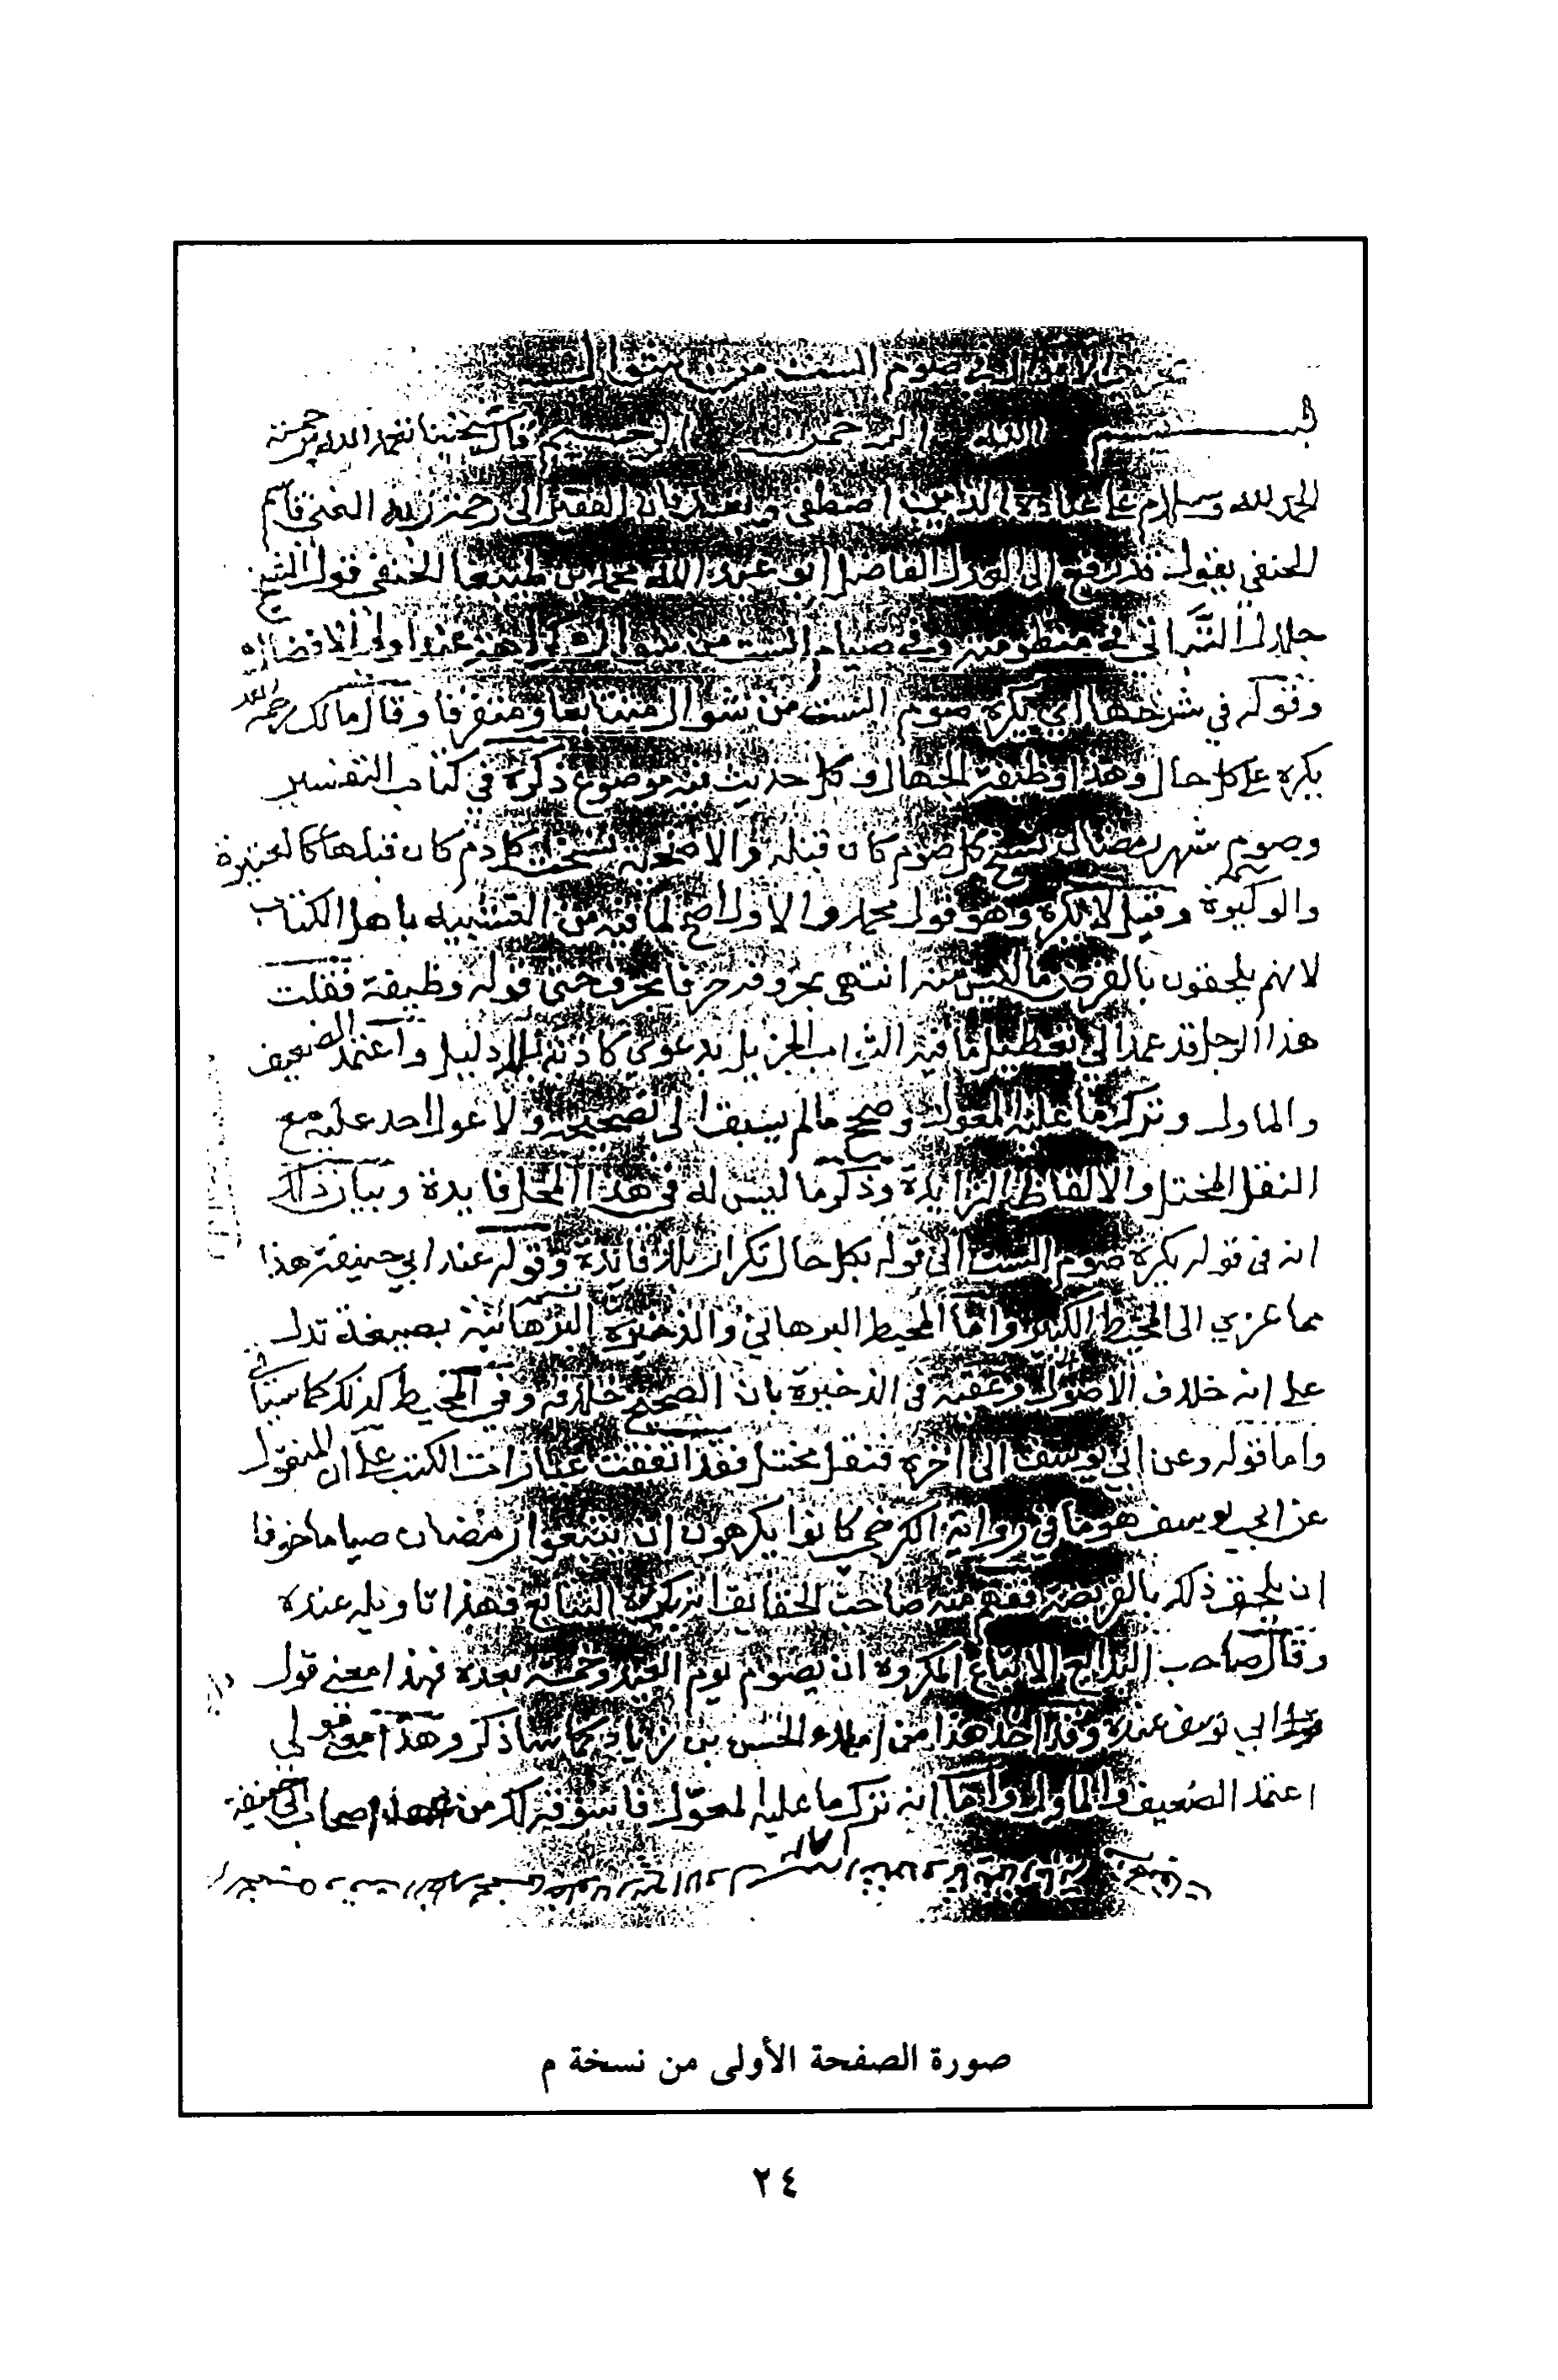 صوم الست من شوال
بسم الله الرحمن الرحيم قال شيخنا تغمده الله برحمته
الحمد لله وسلام على عباده الذين اصطفى وبعد فان الفقير الى رحمة ربه الغني قاسم
الحنفي يقول قد رفع الى الفاضل ابو عبد الله محمد الحنفي قول الشيخ
جلال التباني في منظومته وفي صيام الست من شوال
وقوله في شرحها اي يكره صوم الست من شوال متتابعا ومتفرقا وقال مالك رحمه الله
يكره على كل حال وهذا وظيفة الجهال وكل حديث فيه موضوع ذكره في كتاب التفسير
وصوم شهر رمضان نسخ كل صوم كان قبله والاضحية نسخت كل دم كان قبلها كالعتيرة
وقيل لا تكره وهو قول محمد والاول اصح لما فيه من التشبيه باهل الكتاب
لانهم يلحقون بالفرض ما ليس منه انتهى بحروفه حرفا بحرف حتى قوله وظيفة فقلت
هذا الرجل قد عمد الى تعطيل ما فيه الثواب الجزيل بدعوى كاذبة بلا دليل واعتمد الضعيف
والماول وترك ما عليه المعول وصحح ما لم يسبق الى تصحيحه ولا عول احد عليه مع
النقل المختل والالفاظ الزايدة وذكر ما ليس له في هذا المحل فايدة وبيان ذلك
انه في قوله يكره صوم الست الى قوله بكل حال تكرار بلا فائدة وقوله عند ابي حنيفة هذا
مما عزي الى المحيط الكبير واما المحيط البرهاني والذخيرة البرهانية بصيغة تدل
على انه خلاف الاصول وعقبه في الذخيرة بان الصحيح خلافه وفي المحيط كذلك كما سياتي
واما قوله وعن ابي يوسف الى اخره فنقل مختل فقد اتفقت عبارات الكتب على ان المنقول
عن ابي يوسف هو ما في رواية الكرخي كانوا يكرهون ان يتبعوا رمضان صياما خوفا
ان يلحق ذلك بالفريضة ففهم منه صاحب الحقائق انه يكره التتابع فهذا تاويله عنده
وقال صاحب البدائع الاتباع المكروه ان يصوم يوم العيد وخمسة بعده فهذا معنى قول
ابي يوسف عنده وقد اخذ هذا من املاء الحسن بن زياد كما ساذكر وهذا معنى قولي
اعتمد الضعيف والماول واما انه ترك ما عليه المعول فاسوقه لك من اصحاب ابي حنيفة
صورة الصفحة الأولى من نسخة م
٢٤